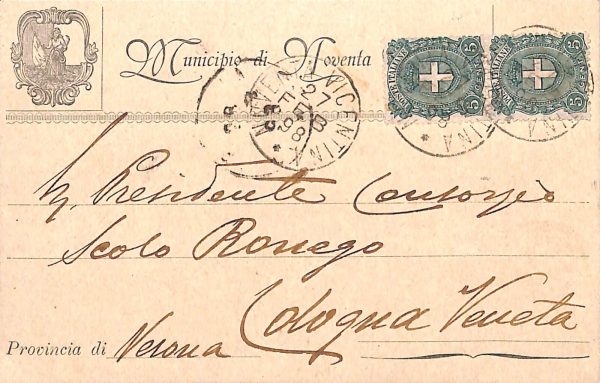 Municipio di Noventa
POSTE ITALIANE 5 5
POSTE ITALIANE 5 5
NOVENTA VICENTINA
27 FEB 98
Presidente Consorzio
Scolo Ronego
Cologna Veneta
Provincia di Verona